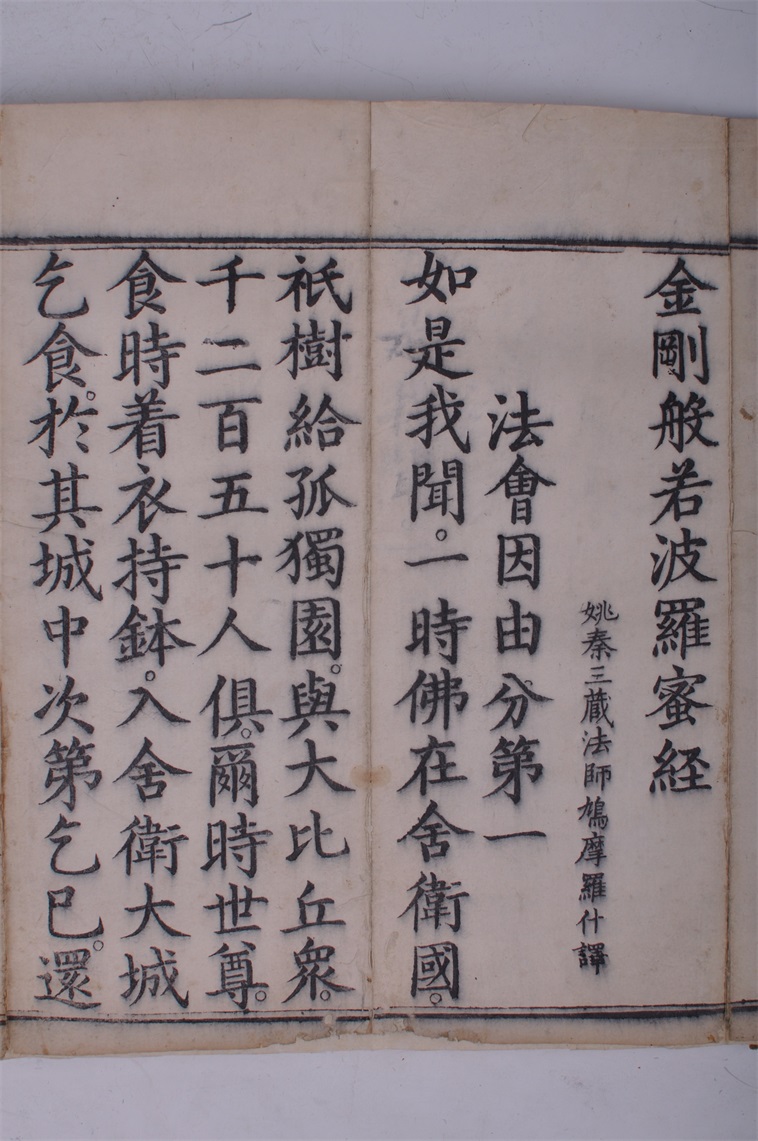 金剛般若波羅蜜経
姚秦三蔵法師鳩摩羅什譯
法會因由分第一
如是我聞。一時佛在舍衛國。
祇樹給孤獨園。與大比丘衆。
千二百五十人俱。爾時世尊。
食時着衣持鉢。入舍衛大城
乞食。於其城中次第乞已。還